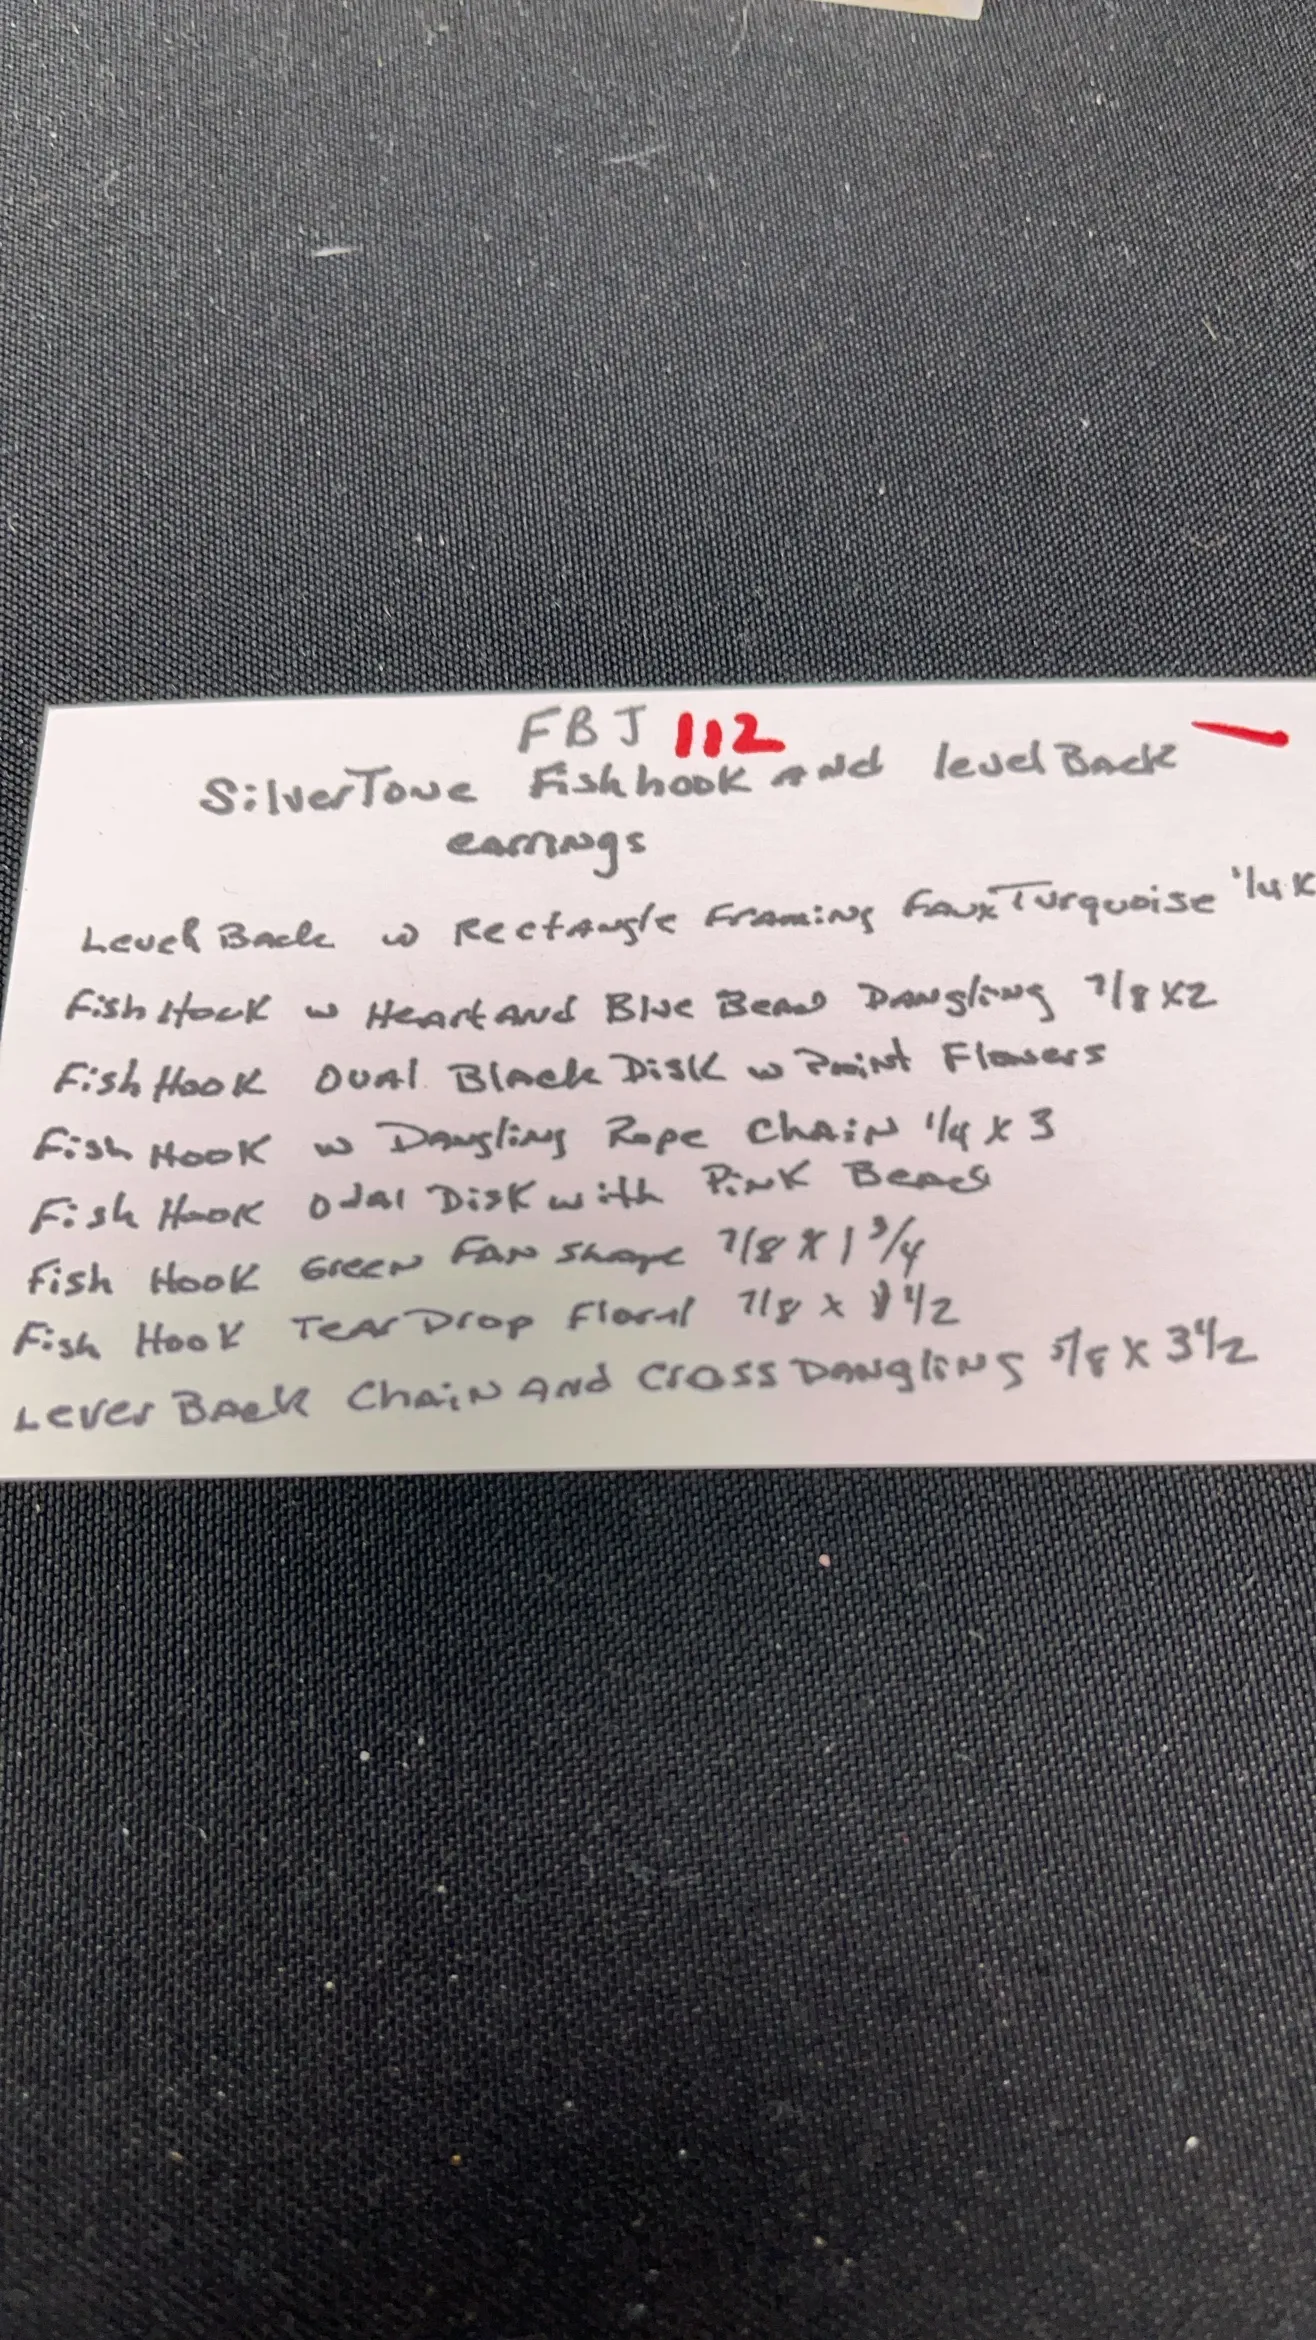 FBJ 112
SilverTone Fishhook and level Back
earrings
Level Back w Rectangle Framing Faux Turquoise 1/4 X
Fish Hook w Heart and Blue Bead Dangling 7/8 X 2
Fish Hook Oval Black Disk w Paint Flowers
Fish Hook w Dangling Rope Chain 1/4 X 3
Fish Hook Oval Disk with Pink Beads
Fish Hook Green Fan Shape 7/8 X 1 3/4
Fish Hook Tear Drop Floral 7/8 X 1 1/2
Lever Back Chain and Cross Dangling 5/8 X 3 1/2